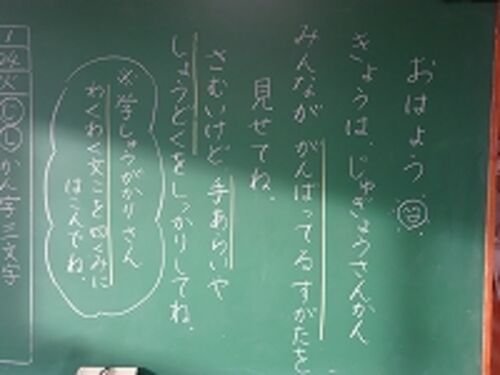 おはよう
きょうは、じゅぎょうさんかん
みんなが がんばってるすがたを
見せてね。
さむいけど 手あらいや
しょうどくをしっかりしてね。
※学しゅうがかりさん
わくわく文こを四くみに
はこんでね。
かん字三文字